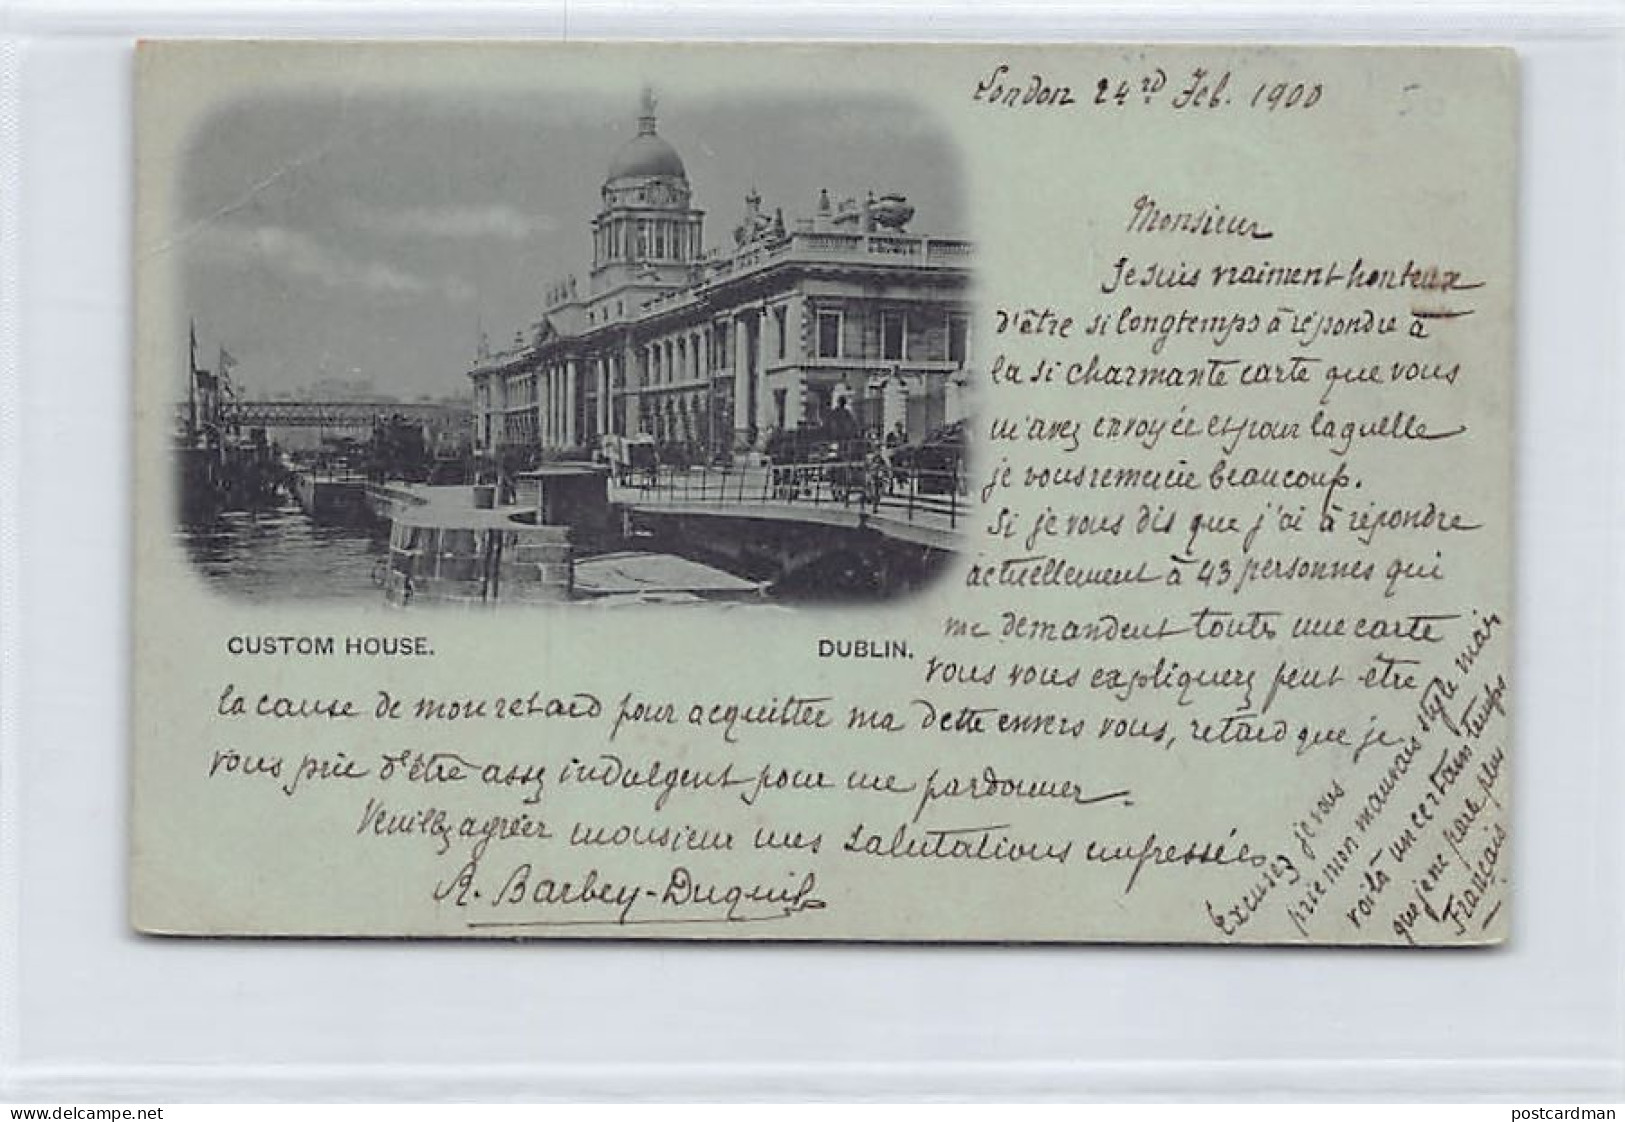 London 24rd Feb. 1900
Monsieur
Je suis vraiment honteux
d'être si longtemps à répondre à
la si charmante carte que vous
m'avez envoyée et pour laquelle
je vous remercie beaucoup.
Si je vous dis que j'ai à répondre
actuellement à 43 personnes qui
me demandent toutes une carte
vous vous expliquerez peut-être
CUSTOM HOUSE. DUBLIN.
la cause de mon retard pour acquitter ma dette envers vous, retard que je
vous prie d'être assez indulgent pour me pardonner.
Veuillez agréer monsieur mes salutations empressées
A. Barbey-Duquil
Excusez je vous
prie mon mauvais style mais
voilà un certain temps
que je ne parle plus
Français
www.delcampe.net
postcardman